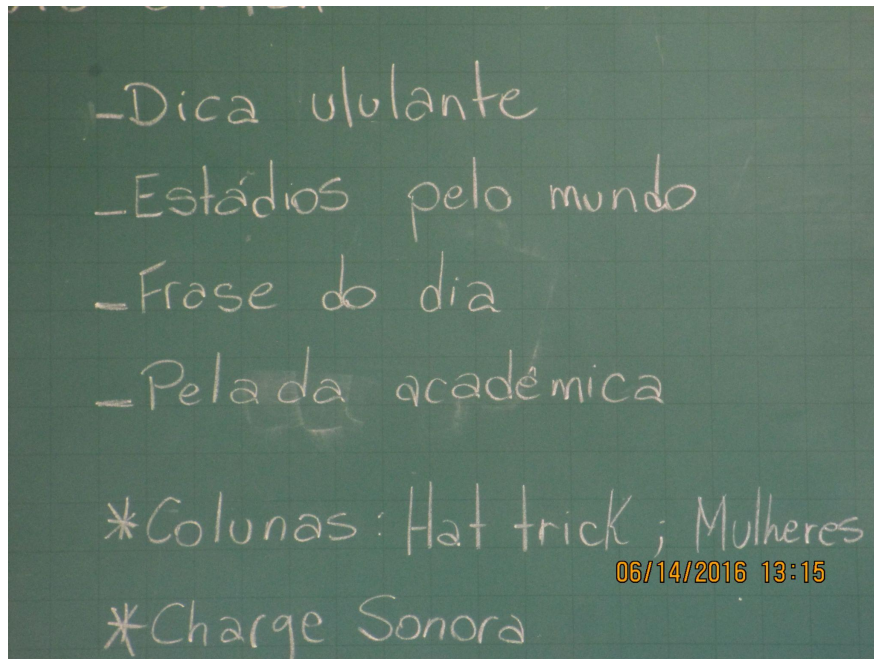 -Dica ululante
-Estádios pelo mundo
-Frase do dia
-Pelada acadêmica
*Colunas: Hat trick; Mulheres
06/14/2016 13:15
*Charge Sonora